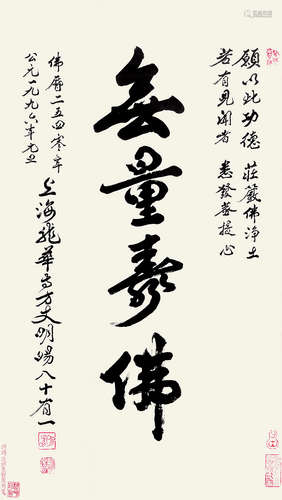 願以此功德　莊嚴佛淨土
若有見聞者　悉發菩提心
無量壽佛
佛曆二五四零年
公元一九九六年元旦
上海龍華寺方丈明暘八十有一